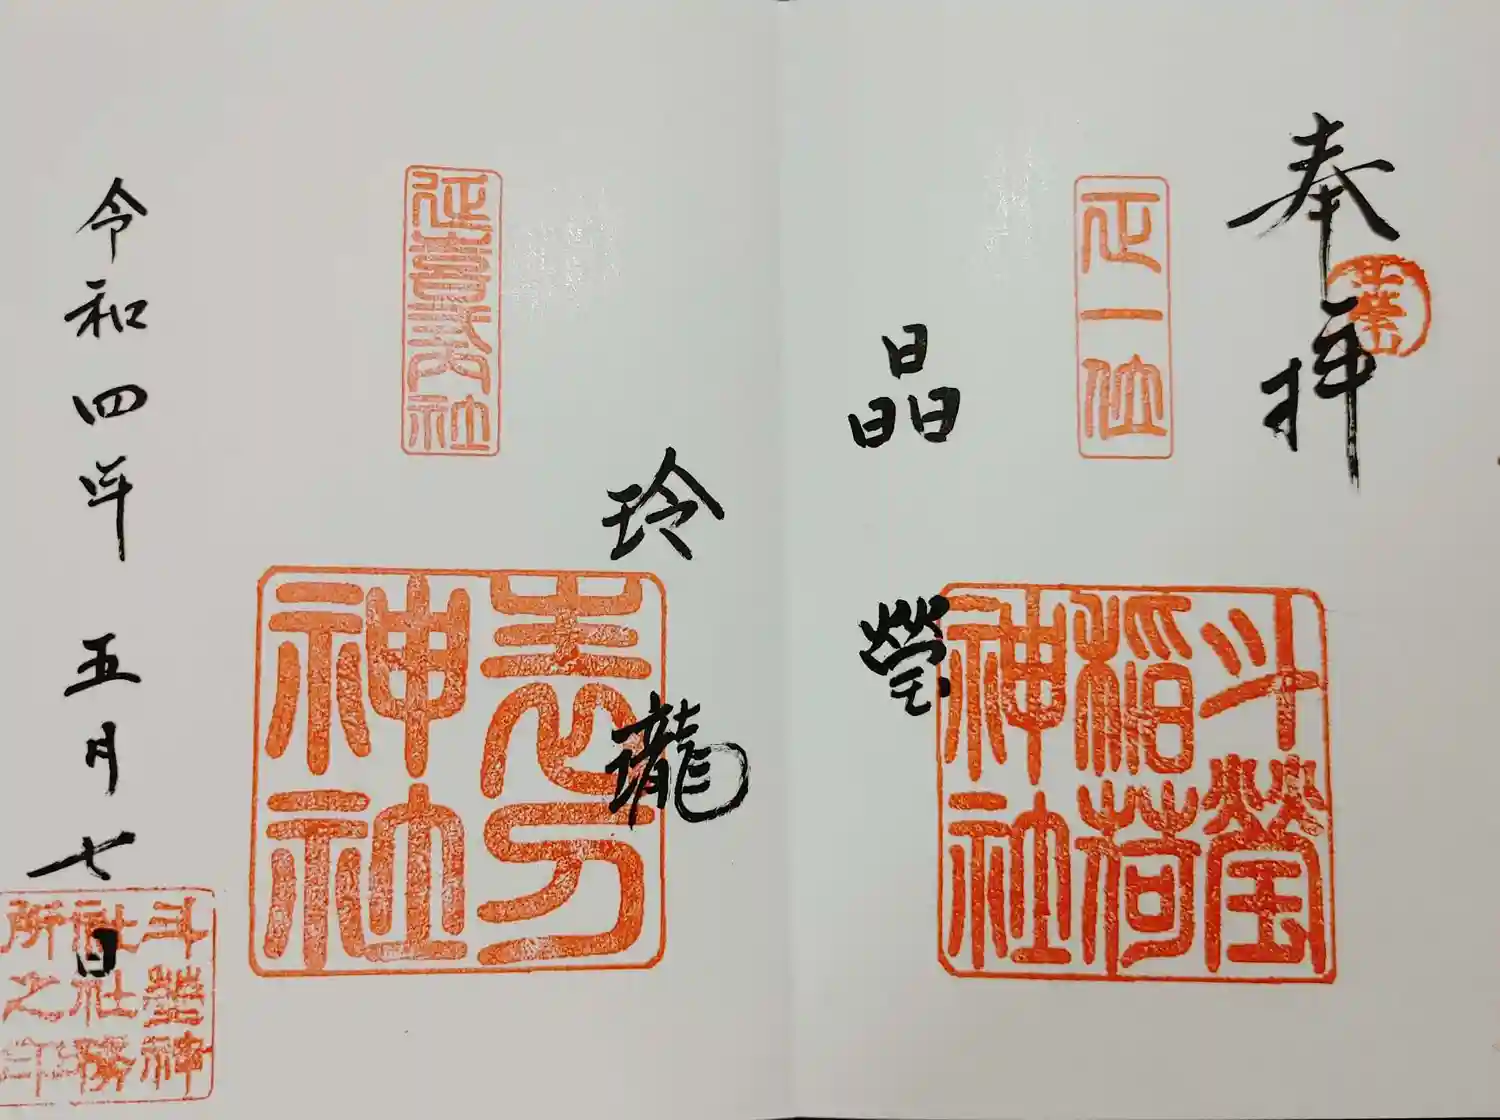 奉拝
斗瑩
正一位
斗瑩
稲荷
神社
晶瑩
玲瓏
延喜式内社
志
神社
令和四年 五月七日
斗瑩神
社社務
所之印